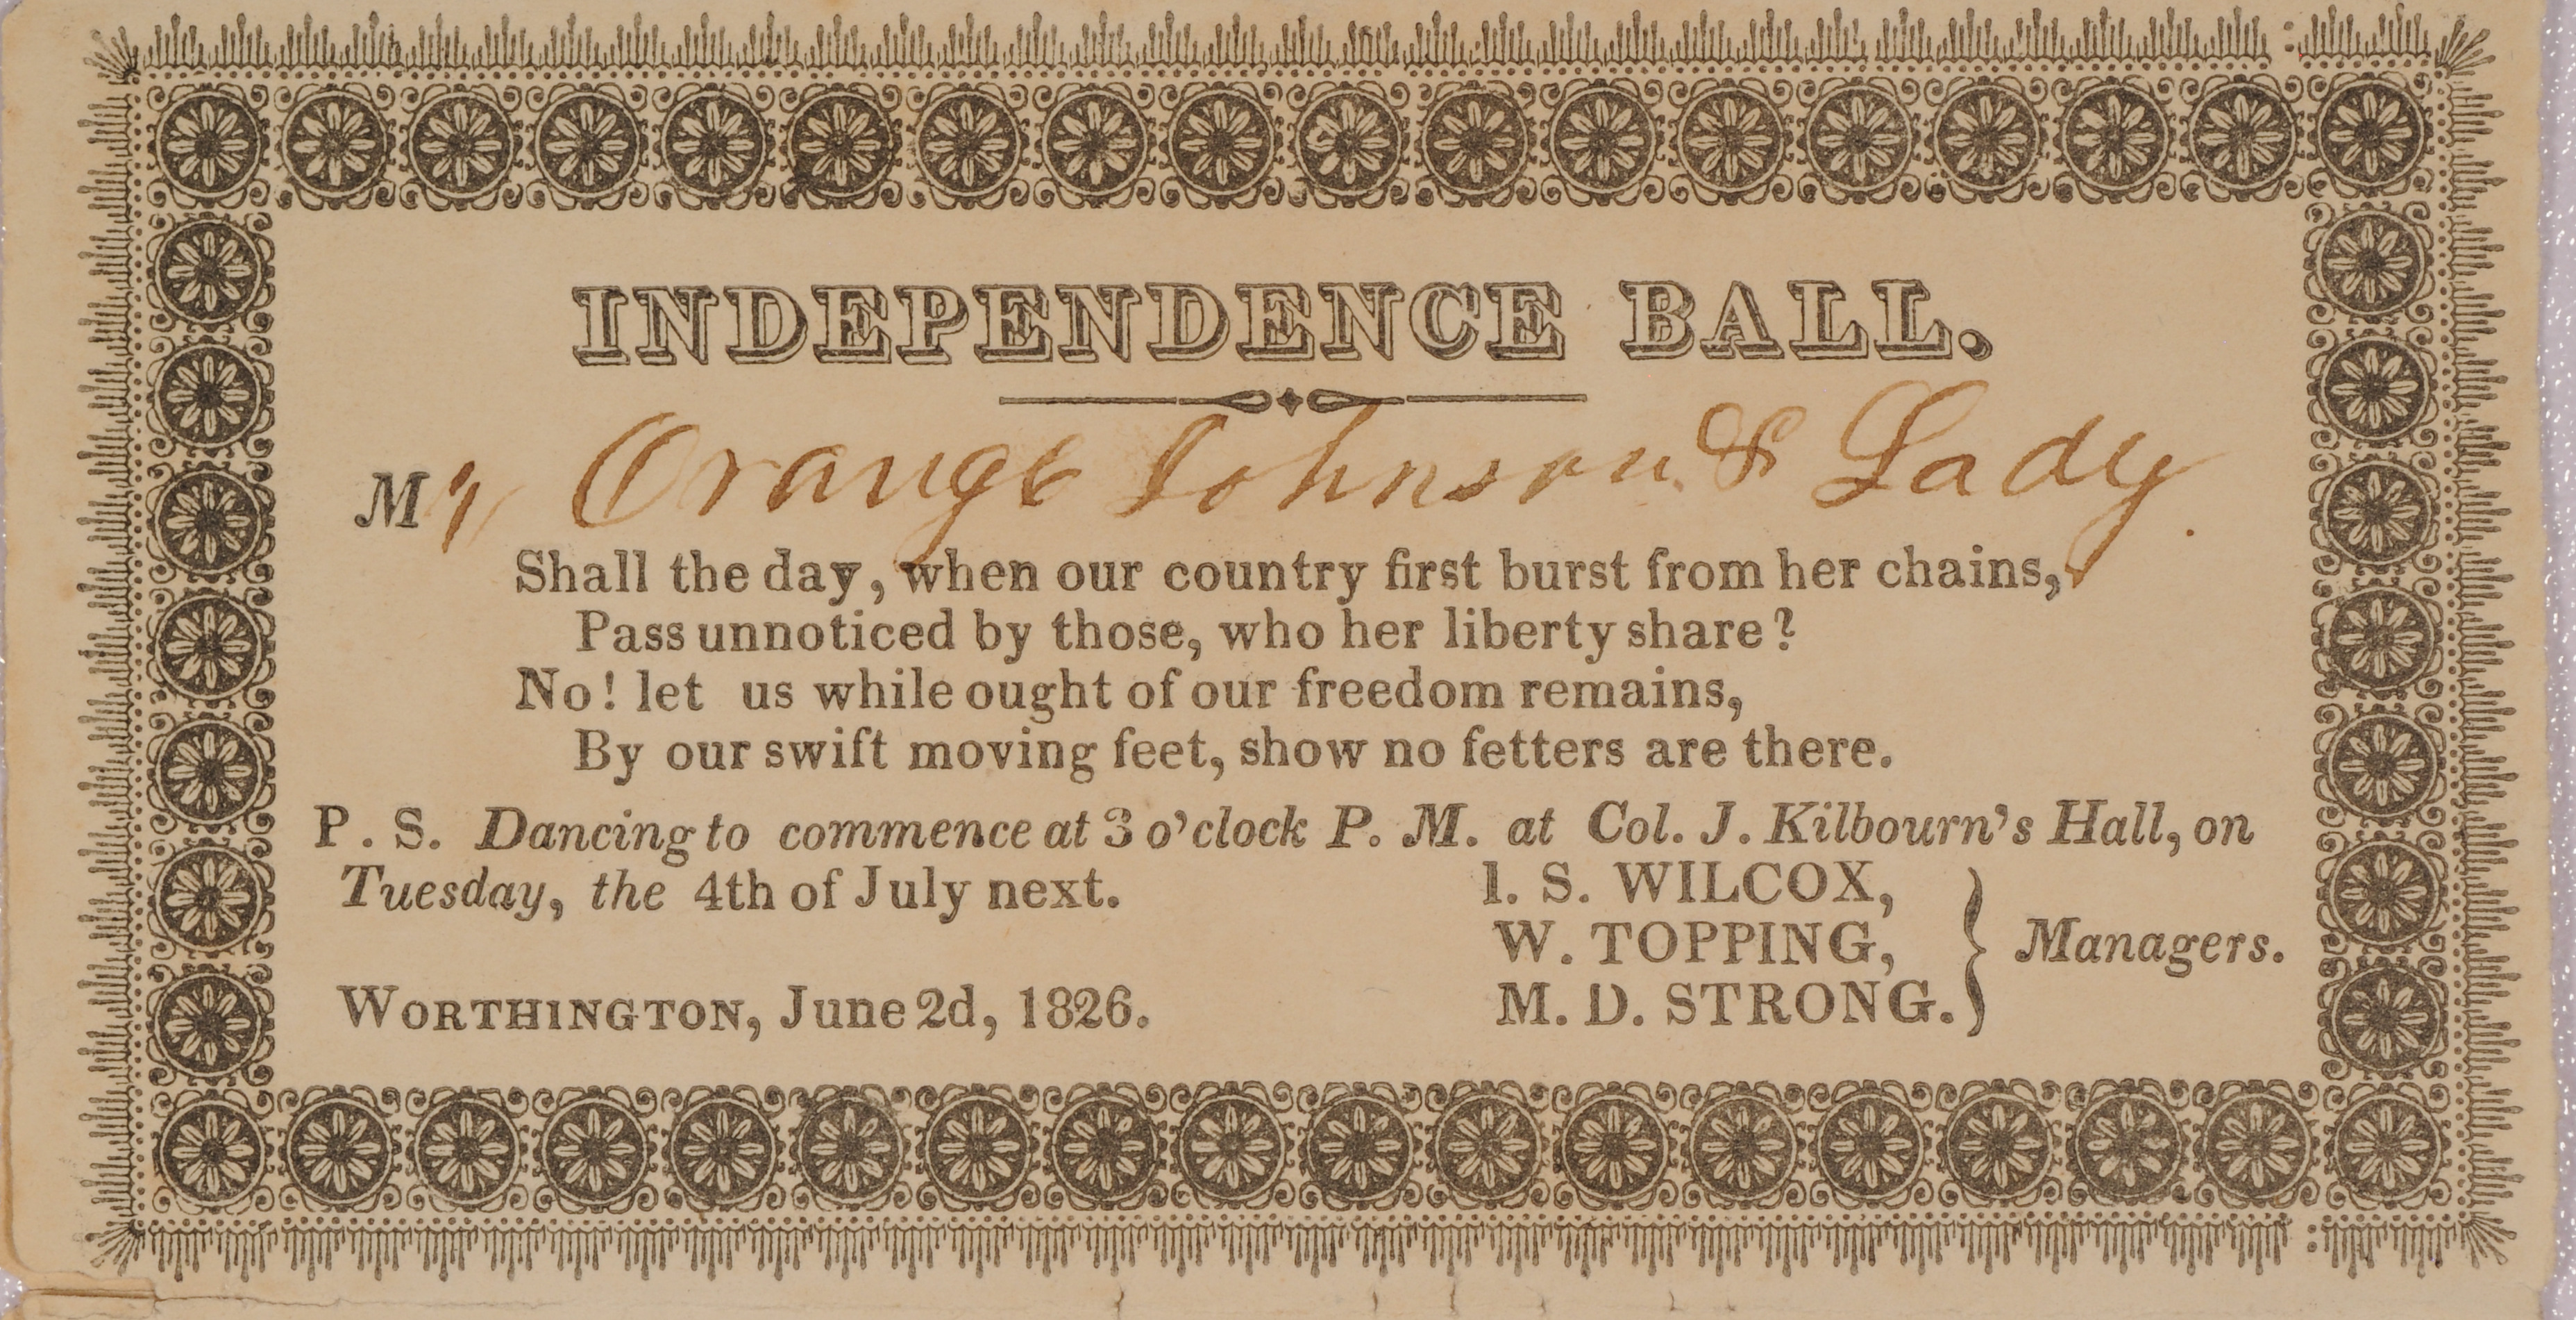 INDEPENDENCE BALL.
Mr Orange Johnson & Lady.
Shall the day, when our country first burst from her chains,
Pass unnoticed by those, who her liberty share?
No! let us while ought of our freedom remains,
By our swift moving feet, show no fetters are there.
P. S. Dancing to commence at 3 o'clock P. M. at Col. J. Kilbourn's Hall, on
Tuesday, the 4th of July next.
I. S. WILCOX,
W. TOPPING,
M. D. STRONG.
Managers.
WORTHINGTON, June 2d, 1826.